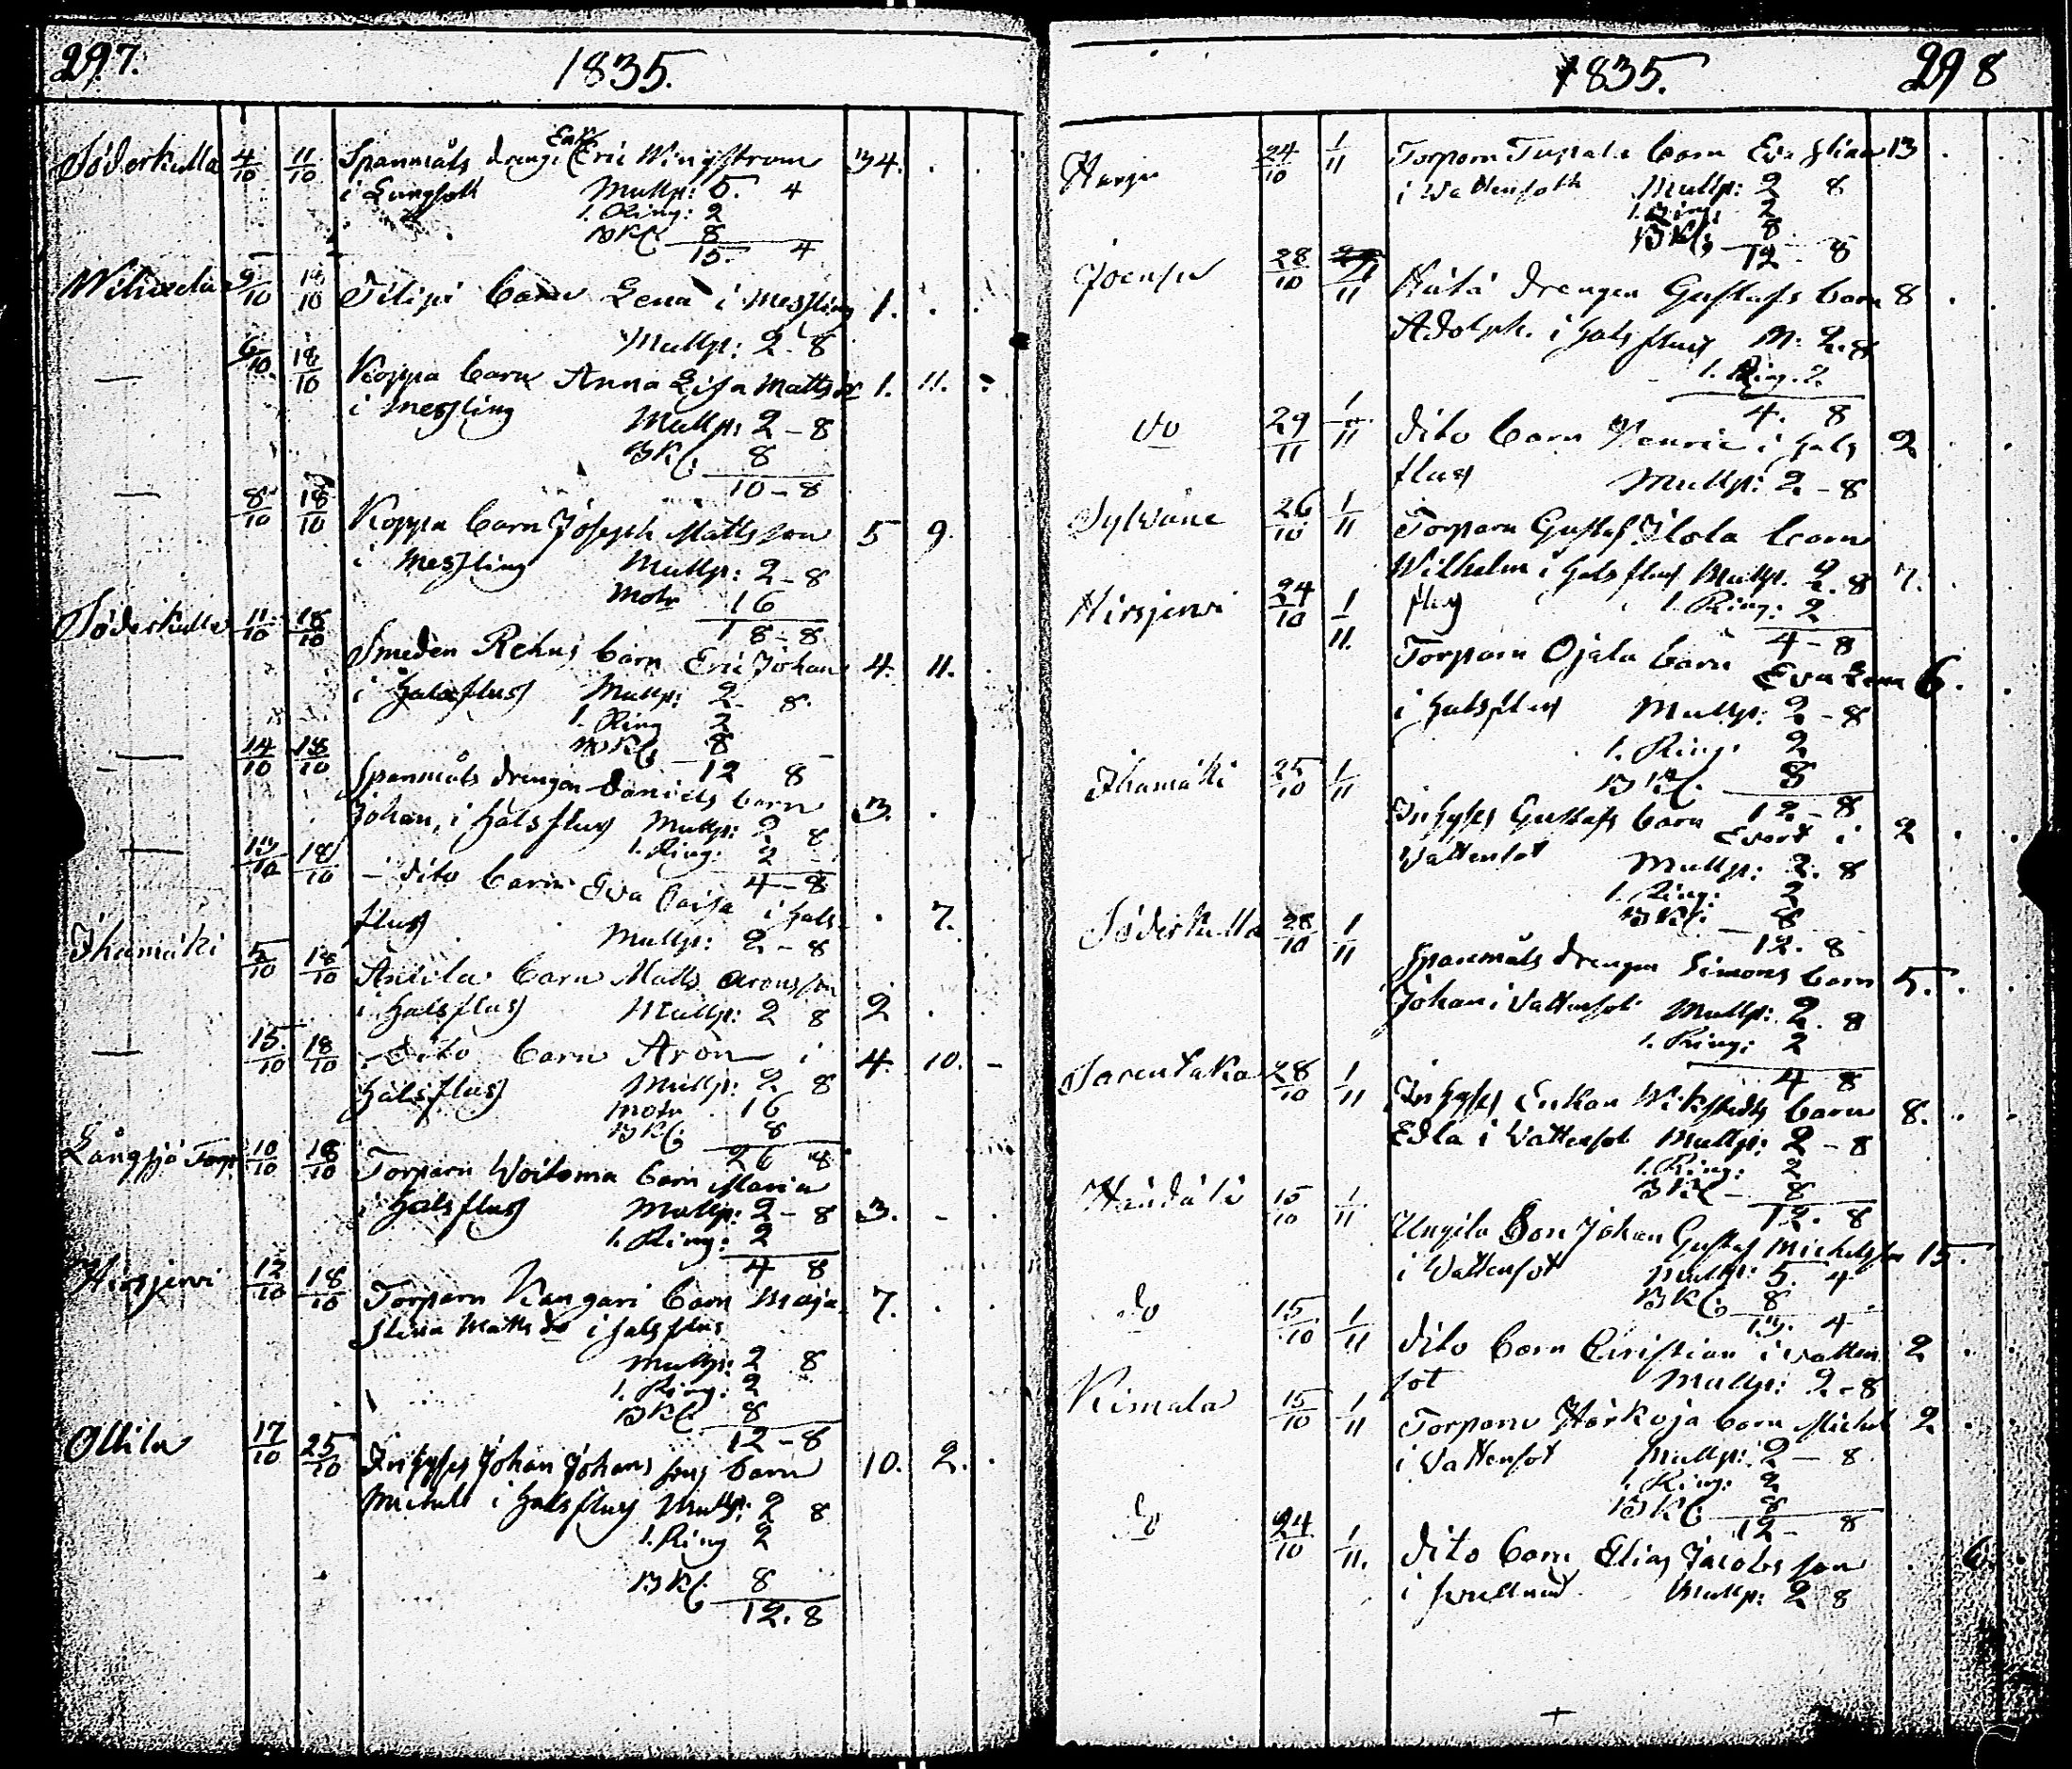 297.
1835.
Söderkulla 4/10 11/10 Spanmåls drengn Enk: Eric Wingström 34. . .
i Lungsott Mullp: 5. 4
1. Ring: 2
BKl: 8
15. 4
9/10 18/10 Filipi barn Lena i Messling 1. . .
Mullp: 2-8
— 6/10. 18/10 Koppa barn Anna Lisa Matts dr 1. 11. .
i Messling Mullp: 2-8
BKl: 8
10-8
— 8/10 18/10 Koppa barn Joseph Matts son 5 9.
i Messling Mullp: 2-8
Motr 16
1 8-8
Söderkulla 11/10 18/10 Smeden Rehns barn Eric Johan 4. 11. .
i halsfluss Mullp: 2. 8.
1. Ring 2
BKl: 8
12 8
— 14/10 18/10 Spanmåls drengen Daniels barn
Johan, i halsfluss Mullp: 2 8 3. .
1. Ring: 2
4-8
— 18/10 - dito barn Eva Caisa i hals
fluss Mullp: 2-8 . 7.
Ihamäki 5/10 18/10 Antila barn Matts Aronsson
i halsfluss Mullp: 2 8 2 .
— 15./10 18/10 - dito barn Aron i 4. 10. -
halsfluss Mullp: 2 8
Motr 16
BKl: 8
26 8
Långsjö Torp 10/10 18/10 Torparn Woitoma barn Maria
i halsfluss Mullp: 2-8 3. - .
1. Ring: 2
4 8
Hirsjerwi 12/10 18/10 Torparn Kangari barn Maja 7. . .
Stina Matts dr i halsfluss
Mullp: 2 8
1. Ring: 2
BKl: 8
12-8
Ollila 17/10 25/10 Inhyses Johan Johans sons barn 10. 2. .
Michell i halsfluss Mullp: 2 8
1. Ring 2
BKl: 8
12.8
1835. 298
Harju 24/10 1/11 Torparn Tupala barn Eva Stina 13 . .
i Wattensoth Mullp: 2 8
1. Ring: 2
BKl: 8
12-8
Joensu 28/10 Hütä drengen Gustafs barn 8 . .
Adolph. i halsfluss M: 2.8
1. Ring. 2.
4. 8
do 29/11 1/11 dito barn Henric i hals 2 . .
fluss Mullp: 2-8
Sylwäne 26/10 1/11 Torparn Gustaf Ilola barn
Wilhelm i halsfluss Mullp. 2.8 7. .
1. Ring: 2
4-8
Hirsjerwi 24/10 1/11. Torparn Ojala barn Eva Lena 6. .
i halsfluss Mullp: 2-8
1. Ring. 2
BKl. 8
12-8
Ihamäki 25/10 1/11 Inhyses Gustafs barn Evert i 2 . .
Wattensot Mullp: 2. 8
1. Ring: 2
BKl: 8
12. 8
Söderkulla 28/10 1/11 Spanmåls drengen Simons barn 5. . .
Johan i Wattensot Mullp: 2. 8
1. Ring: 2
4 8
Sarentaka 28/10 1/11 Inhyses Enkan Wikstedts barn 8. . .
Edla i Wattensot Mullp: 2-8
1. Ring: 2
BKl - 8
12. 8
15/10 1/11 Son Johan Gustaf Michelsson 15.
i Wattensot Mullp: 5. 4
BKl: 8
13. 4
do 15/10 1/11 dito barn Christian i watten 2 . .
sot Mullp: 2-8
Kimala 15/10 1/11 Torparn Härkoja barn Michel 2 . .
i Wattensot Mullp: 2-8.
1. Ring: 2
BKl: 8
12-8
do 24/10 1/11. dito barn Elias Jacobs son . 6. .
i Mullp: 2 8